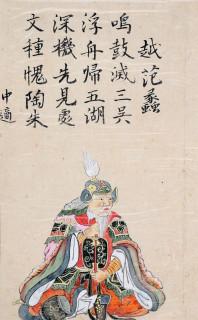 越范蠡
鳴鼓滅三吳
浮舟帰五湖
深機先見處
文種愧陶朱
中適